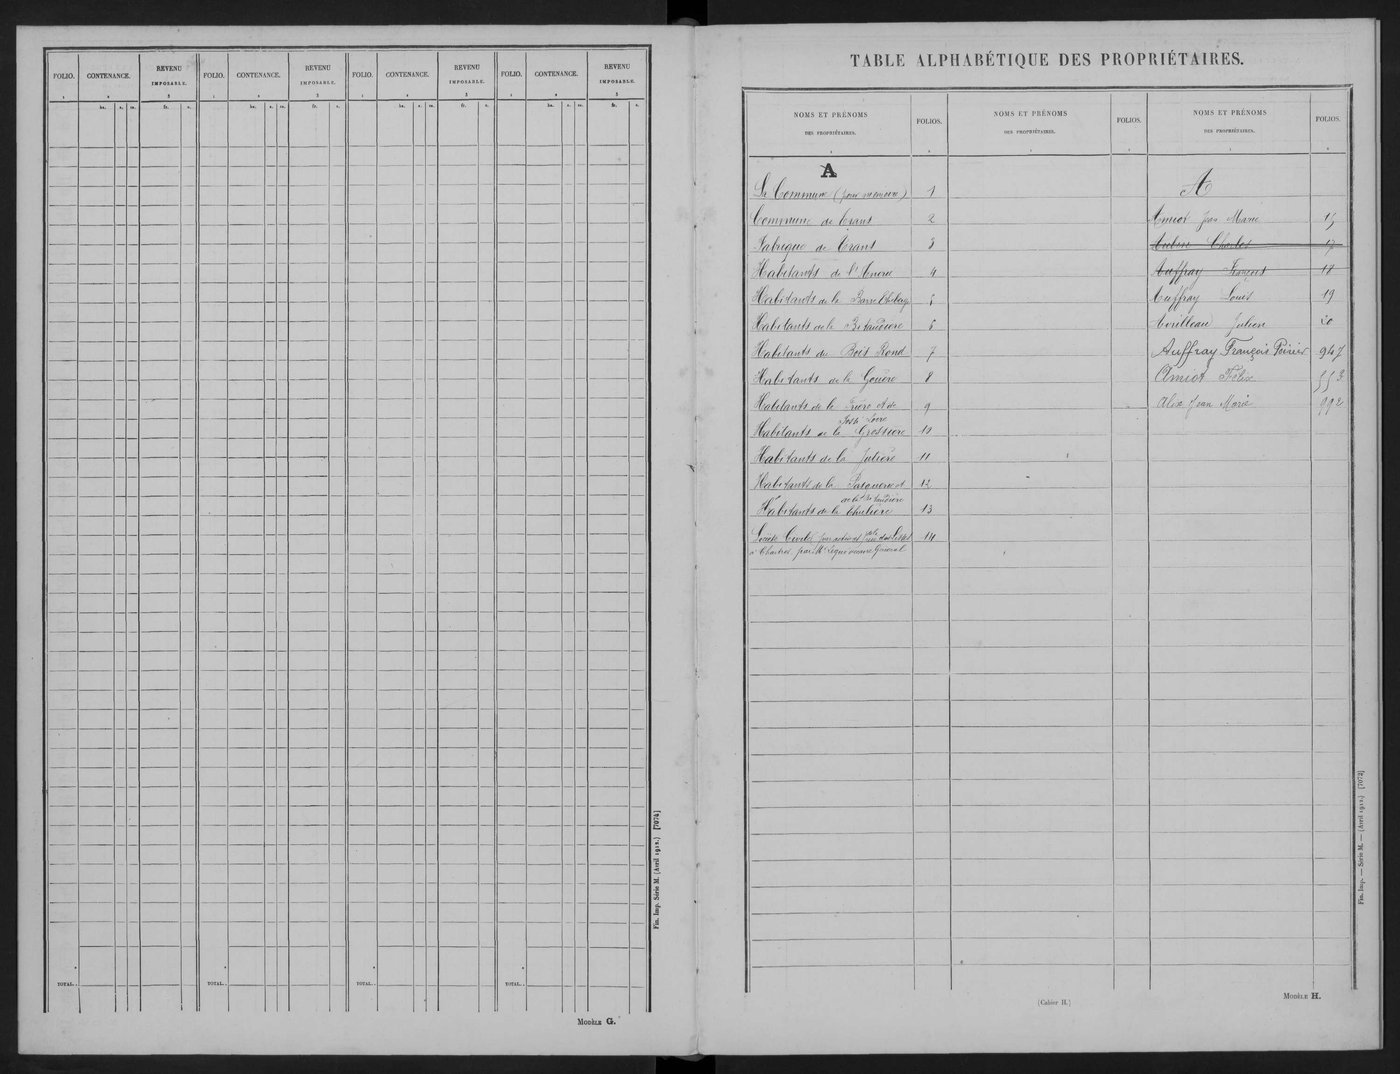 FOLIO. CONTENANCE. REVENU IMPOSABLE. FOLIO. CONTENANCE. REVENU IMPOSABLE. FOLIO. CONTENANCE. REVENU IMPOSABLE. FOLIO. CONTENANCE. REVENU IMPOSABLE.
1 2 3 1 2 3 1 2 3 1 2 3
ha. a. ca. fr. c. ha. a. ca. fr. c. ha. a. ca. fr. c. ha. a. ca. fr. c.
TOTAL. TOTAL. TOTAL. TOTAL.
MODÈLE G.
Fin. Imp. Série M. (Avril 1912.) [7074]
TABLE ALPHABÉTIQUE DES PROPRIÉTAIRES.
NOMS ET PRÉNOMS DES PROPRIÉTAIRES. FOLIOS. NOMS ET PRÉNOMS DES PROPRIÉTAIRES. FOLIOS. NOMS ET PRÉNOMS DES PROPRIÉTAIRES. FOLIOS.
A
La Commune (pour mémoire) 1
Commune de Crans 2
Fabrique de Crans 3
Habitants de l'
4
Habitants de la
Habitants de la Bitaudière 6
Habitants du Bois Rond 7
Habitants de la 8
Habitants de la 9
Habitants de la Grossière 10
Habitants de la Julière 11
Habitants de la 12
de la Bitaudière
Habitants de la 13
Société Civile 14
à Chartres par Mr Général
A
Amiot Jean Marie 15
Aubin Charles 17
Auffray François 18
Auffray Louis 19
Avrilleau Julien 20
Auffray François Poirier 947
Amiot Félix 553
Alix Jean Marie 992
(Cahier H.)
MODÈLE H.
Fin. Imp. — Série M. — (Avril 1912.) [7072]